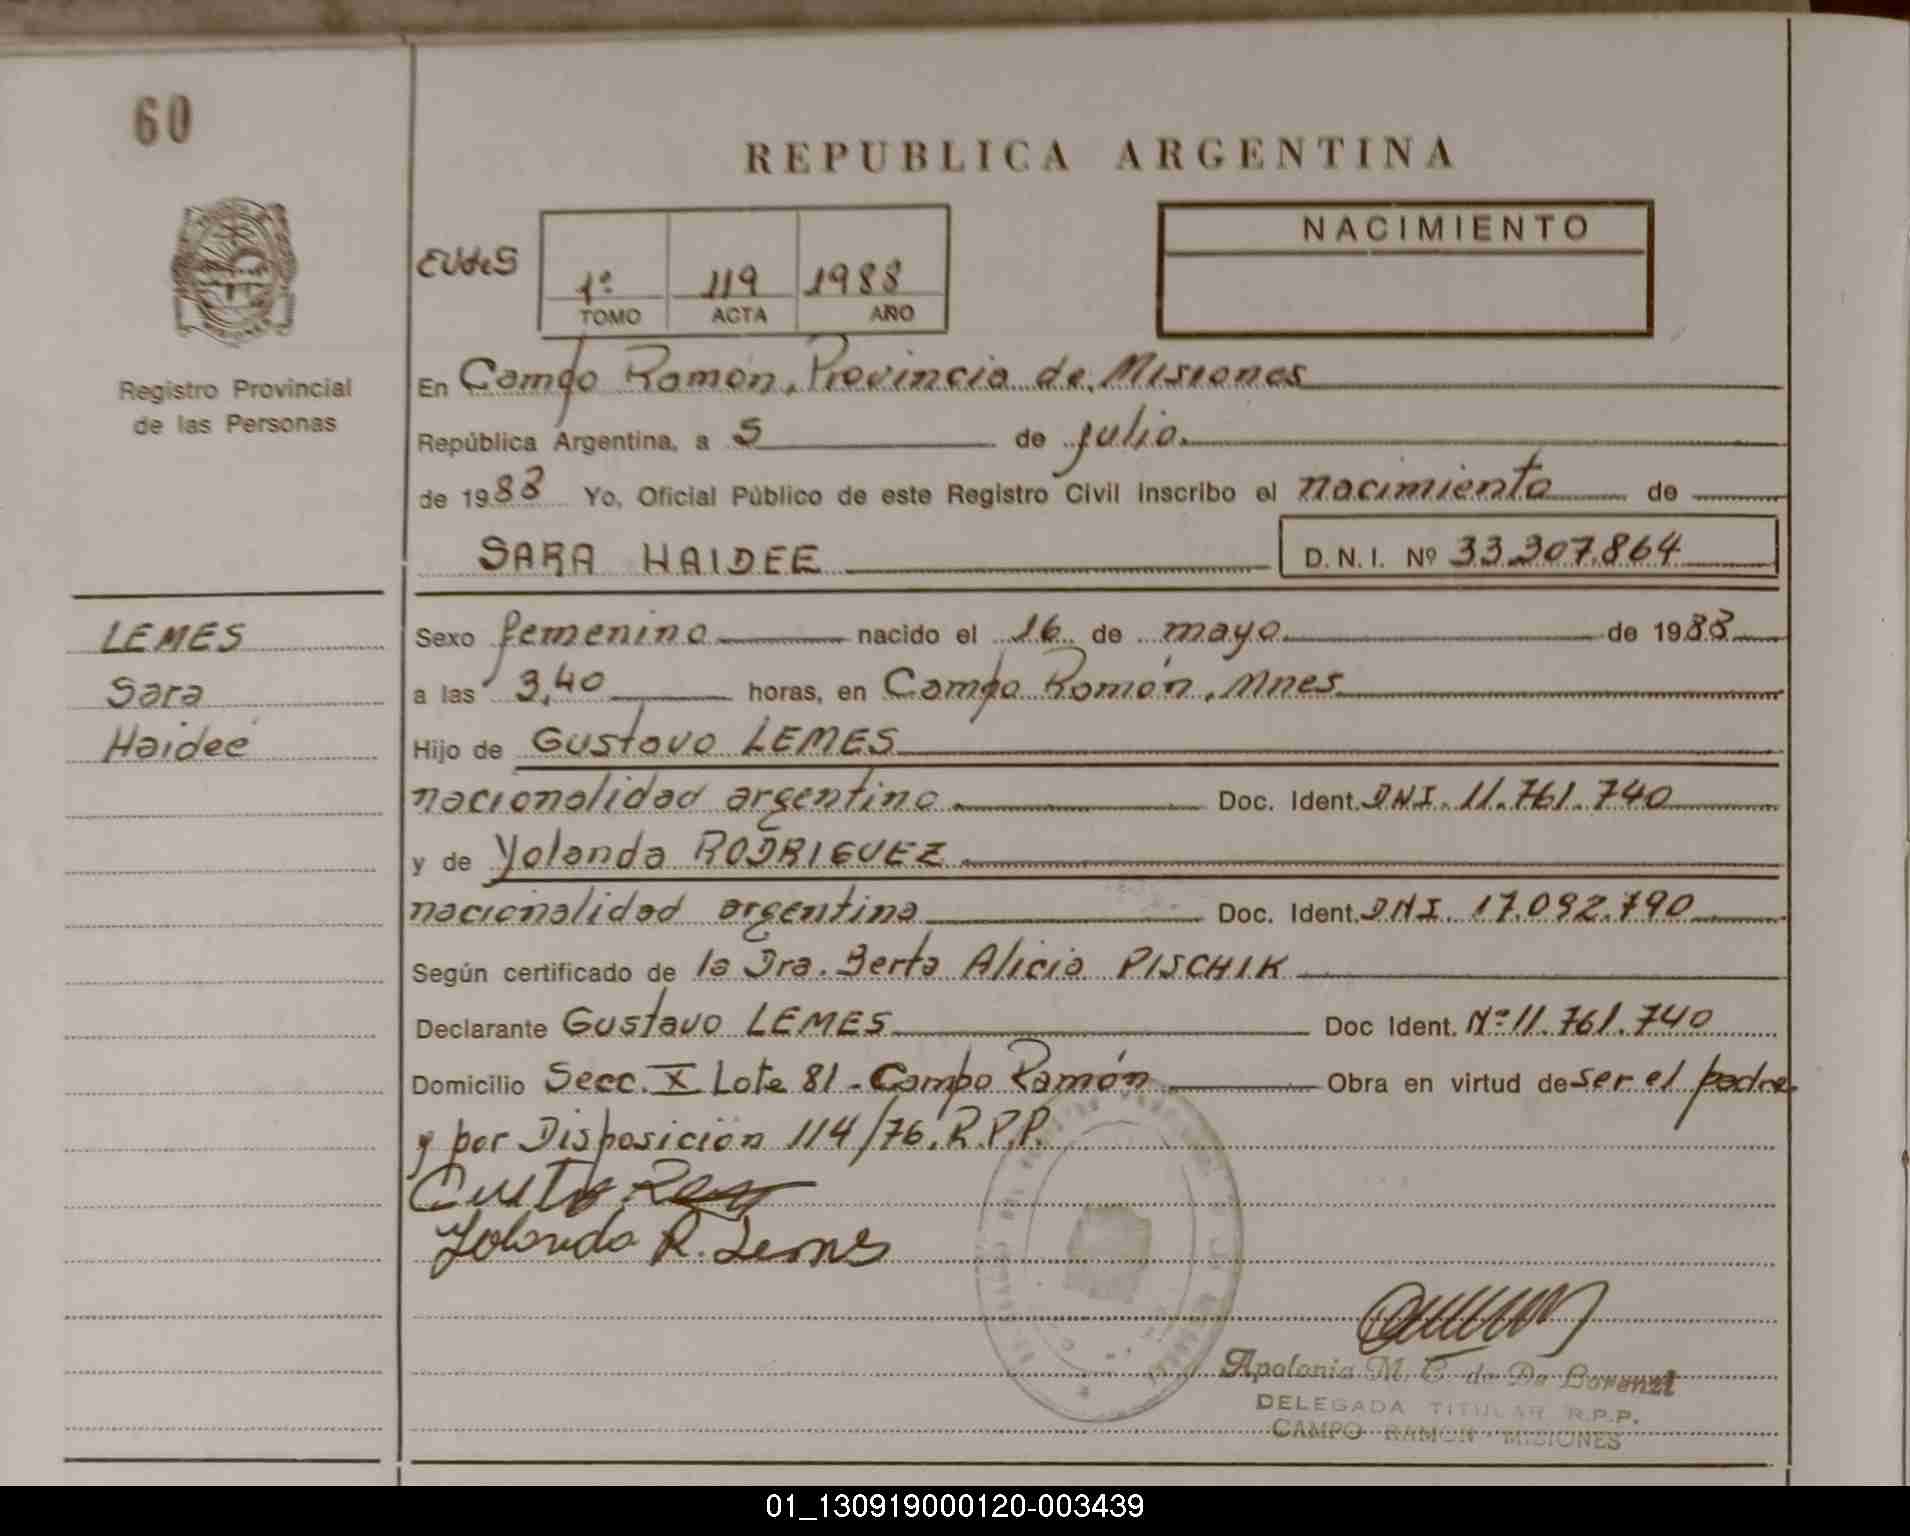 60
REPUBLICA ARGENTINA
NACIMIENTO
EUdeS
1º 119 1988
TOMO ACTA AÑO
Registro Provincial
de las Personas
En Campo Ramón, Provincia de Misiones
República Argentina, a 5 de julio.
de 1988 Yo, Oficial Público de este Registro Civil inscribo el nacimiento de
SARA HAIDEE D. N. I. Nº 33.307.864
LEMES
Sara
Haideé
Sexo femenino nacido el 16 de mayo de 1988
a las 3,40 horas, en Campo Ramón, Mnes
Hijo de Gustavo LEMES
nacionalidad argentina Doc. Ident. DNI. 11.761.740
y de Yolanda RODRIGUEZ
nacionalidad argentina Doc. Ident. DNI. 17.092.790
Según certificado de la Dra. Berta Alicia PISCHIK
Declarante Gustavo LEMES Doc Ident. Nº 11.761.740
Domicilio Secc. X Lote 81 - Campo Ramón Obra en virtud de ser el padre
y por Disposición 114/76. R.P.P.
Yolanda R. Lemes
Apolonia M. C. de De Lorenzi
DELEGADA TITULAR R.P.P.
CAMPO RAMON MISIONES
01_130919000120-003439